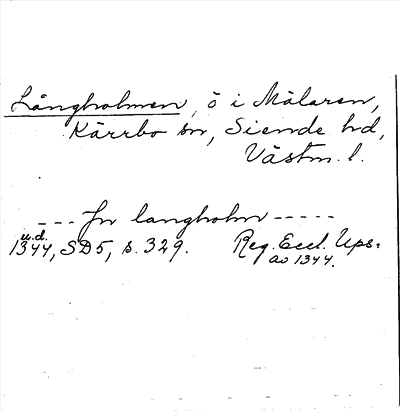 Långholmen, ö i Mälaren,
Kärrbo sn, Siende hd,
Västm. l.
--- Jn langholm -----
u.d.
1344, SD5, s. 329. Reg. Eccl. Ups.
av 1344.